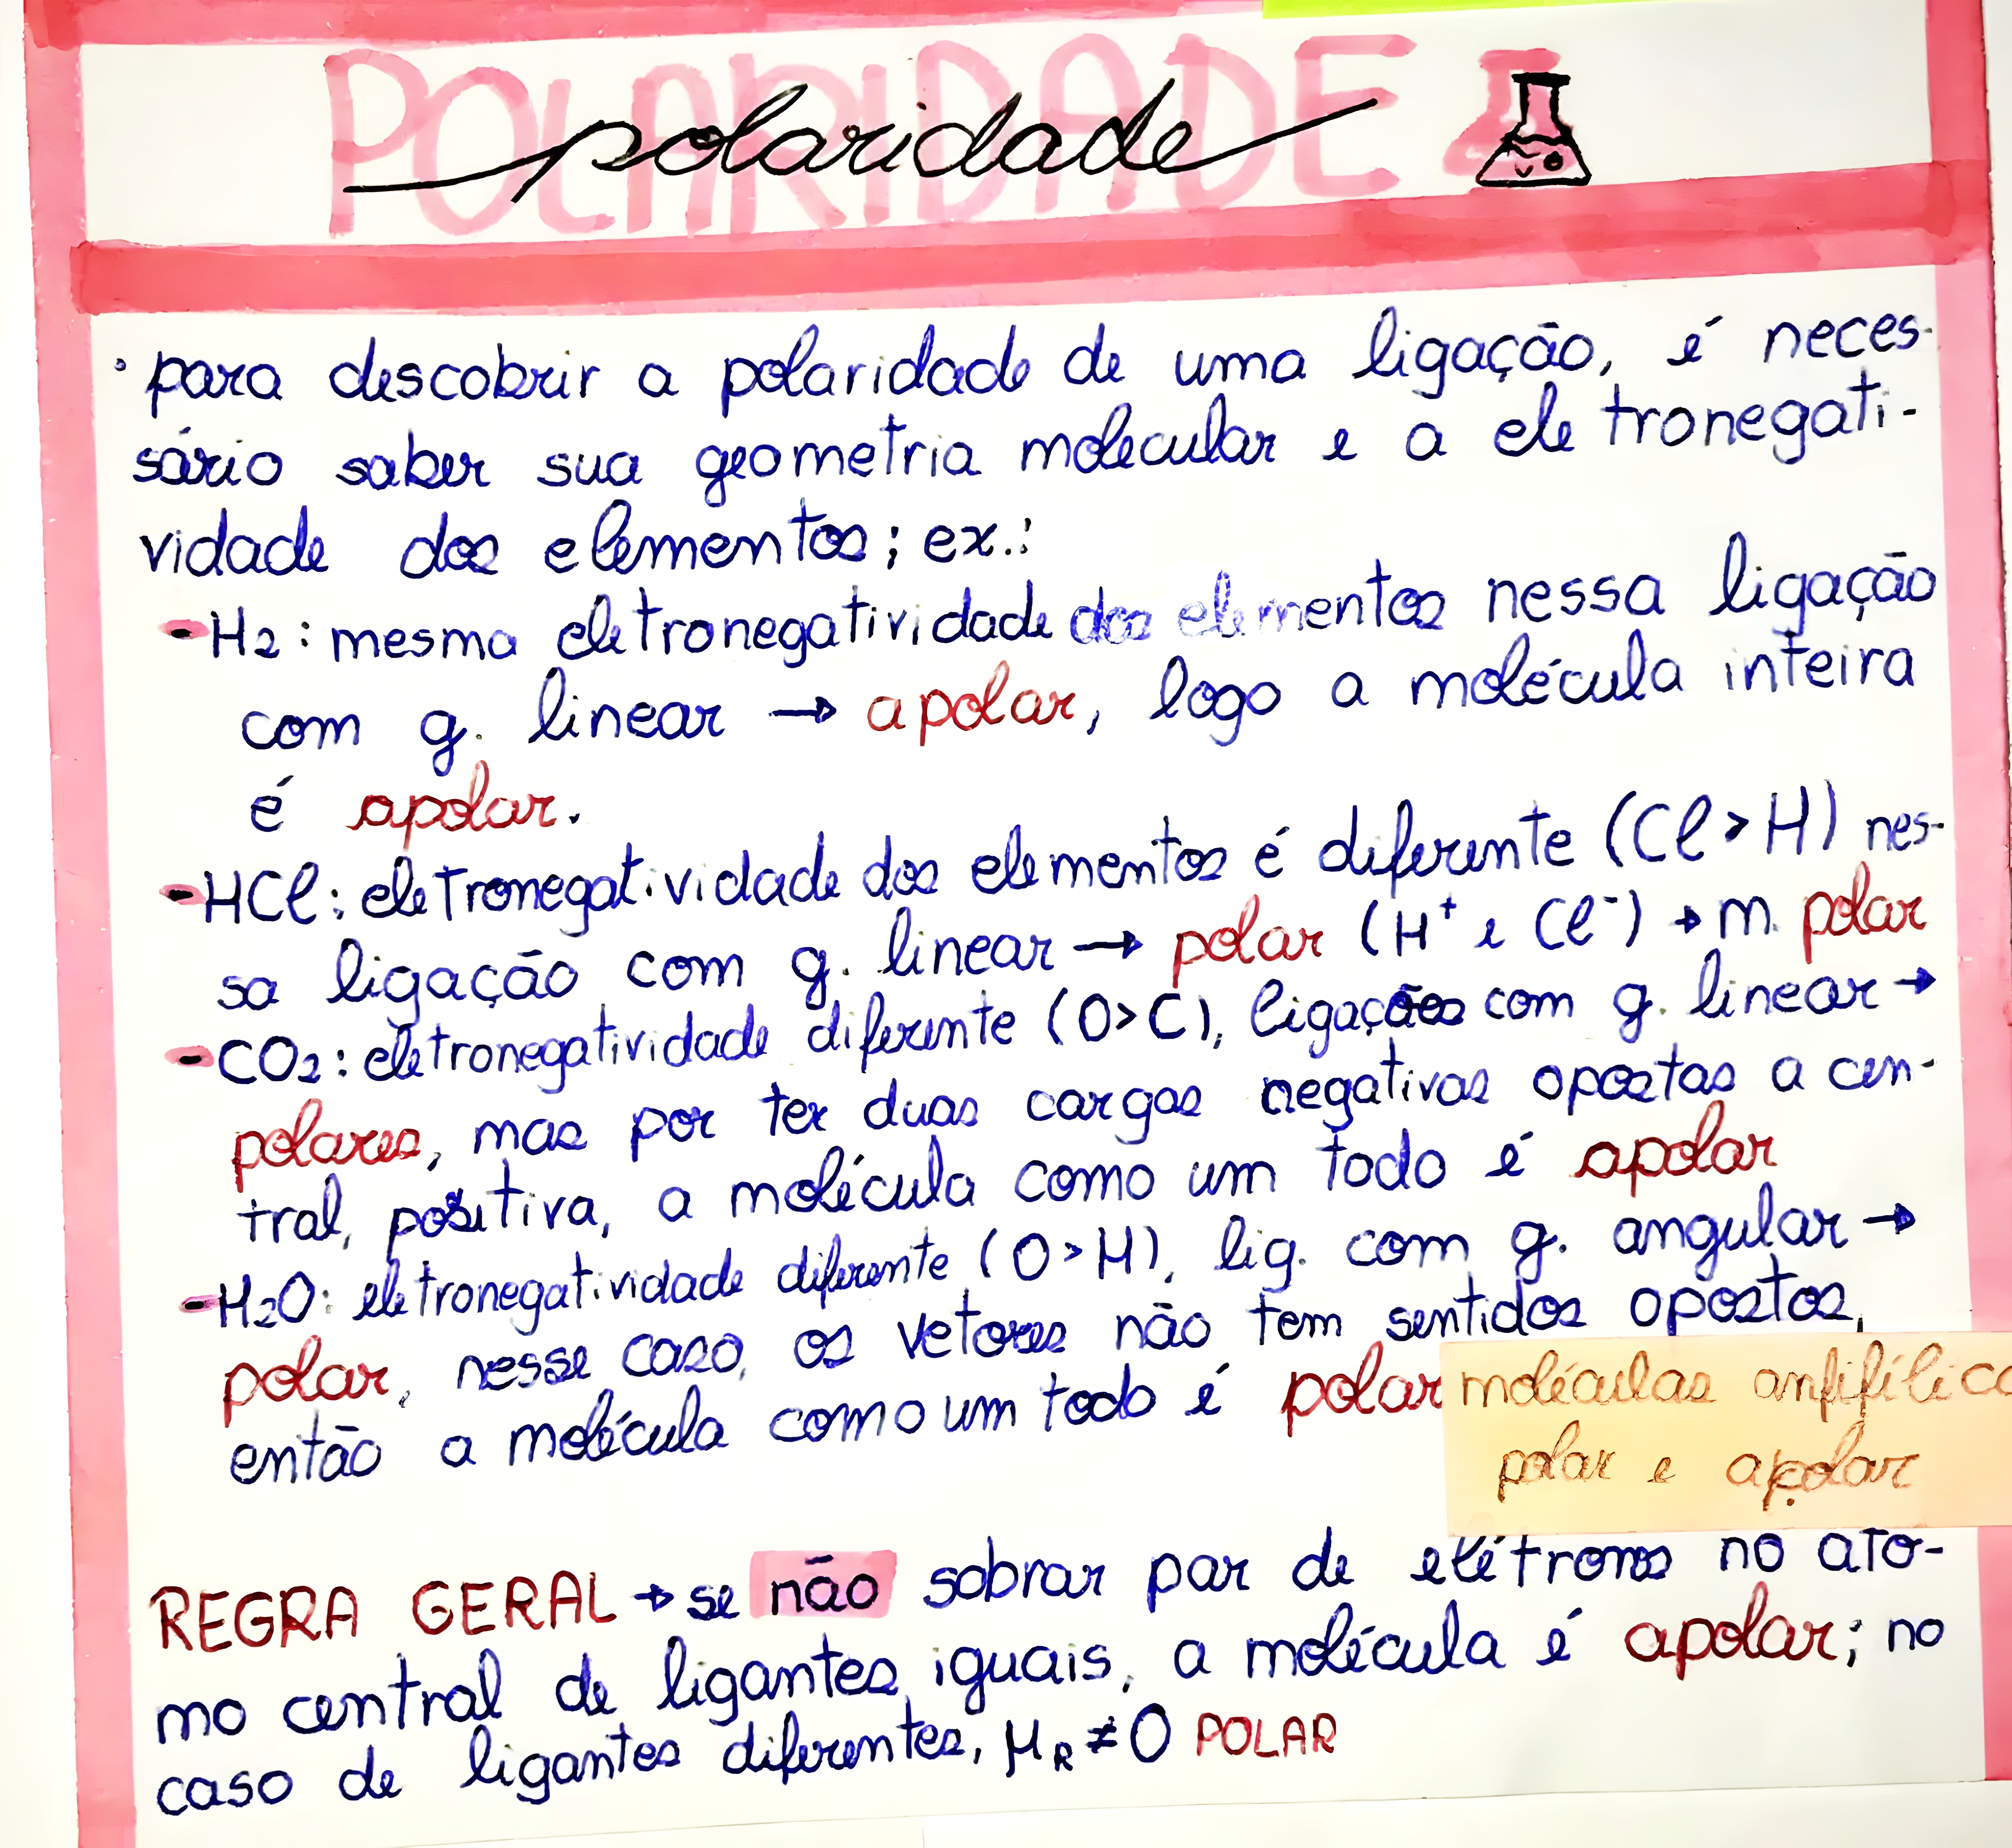 POLARIDADE
polaridade
• para descobrir a polaridade de uma ligação, é neces-
sário saber sua geometria molecular e a eletronegati-
vidade dos elementos; ex.:
- H2: mesma eletronegatividade dos elementos nessa ligação
com g. linear → apolar, logo a molécula inteira
é apolar.
- HCl: eletronegatividade dos elementos é diferente (Cl > H) nes-
sa ligação com g. linear → polar (H⁺ e Cl⁻) → m. polar
- CO2: eletronegatividade diferente (O > C), ligações com g. linear →
polares, mas por ter duas cargas negativas opostas a cen-
tral, positiva, a molécula como um todo é apolar
- H2O: eletronegatividade diferente (O > H), lig. com g. angular →
polar, nesse caso, os vetores não tem sentidos opostos,
então a molécula como um todo é polar
moléculas anfifílica
polar e apolar
REGRA GERAL → se não sobrar par de elétrons no áto-
mo central de ligantes iguais, a molécula é apolar; no
caso de ligantes diferentes, μR ≠ 0 POLAR